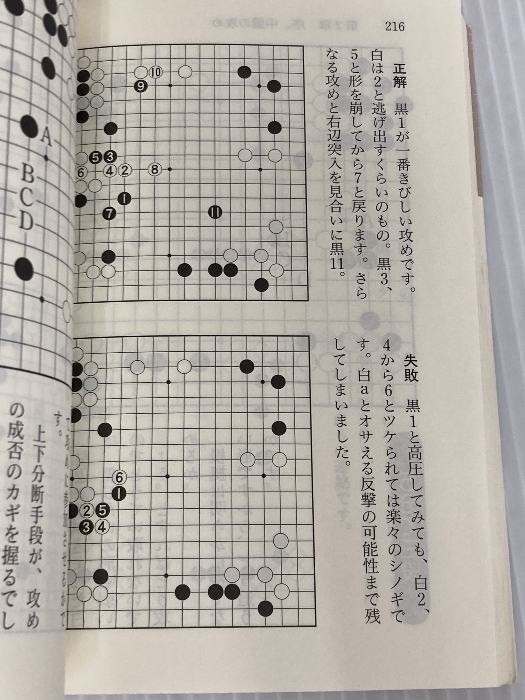 216
正解　黒1が一番きびしい攻めです。
白は2と逃げ出すくらいのもの。黒3、
5と形を崩してから7と戻ります。さら
なる攻めと右辺突入を見合いに黒11。
⑩
❾
❺❸
⑥④②⑧
❶
❼
⓫
失敗　黒1と高圧してみても、白2、
4から6とツケられては楽々のシノギで
す。白aとオサえる反撃の可能性まで残
してしまいました。
⑥
❶
②❺
❸④
A
B
C
D
す。
上下分断手段が、攻め
の成否のカギを握るでし